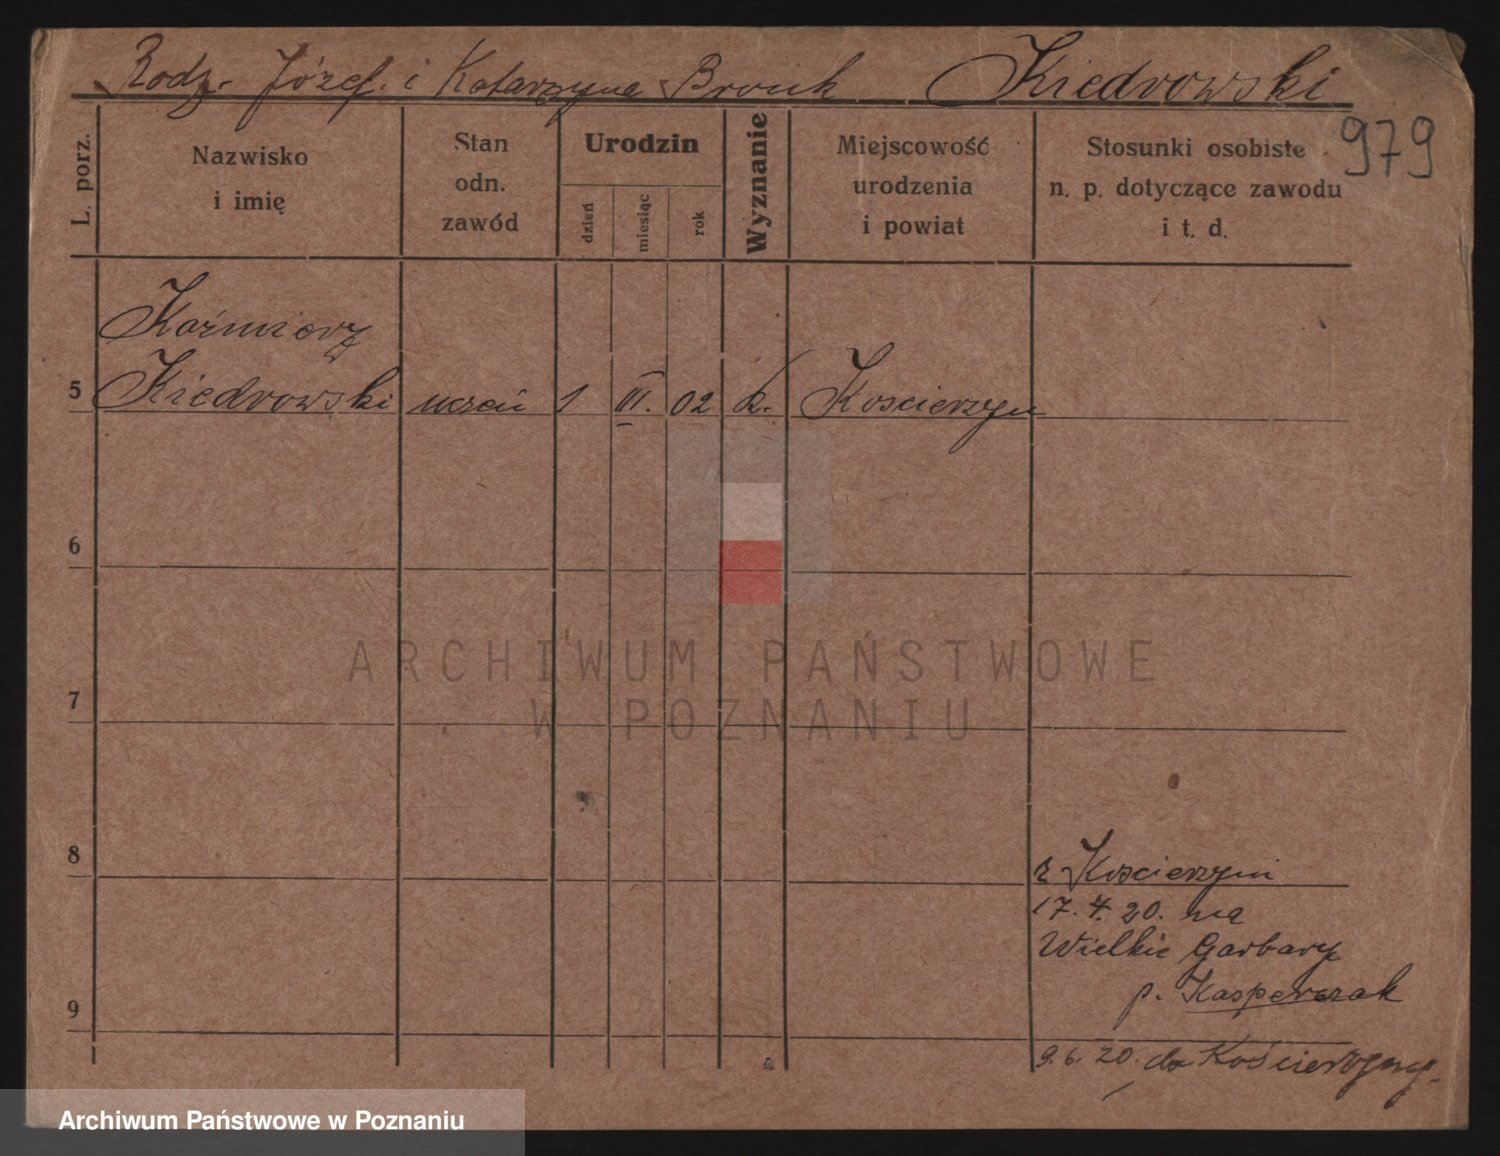 Rodz. Józef. i Katarzyna Bronk Kiedrowski
979
L. porz.
Nazwisko
i imię
Stan
odn.
zawód
Urodzin
dzień
miesiąc
rok
Wyznanie
Miejscowość
urodzenia
i powiat
Stosunki osobiste
n. p. dotyczące zawodu
i t. d.
Kaźmierz
5 Kiedrowski uczeń 1 III. 02 k. Koscierzyn
6
ARCHIWUM PAŃSTWOWE
7
W POZNANIU
8
z Koscierzyni
17.4.20. na
Wielkie Garbary
p. Kasperczak
9
9.6.20. do Kościerzyny.
Archiwum Państwowe w Poznaniu